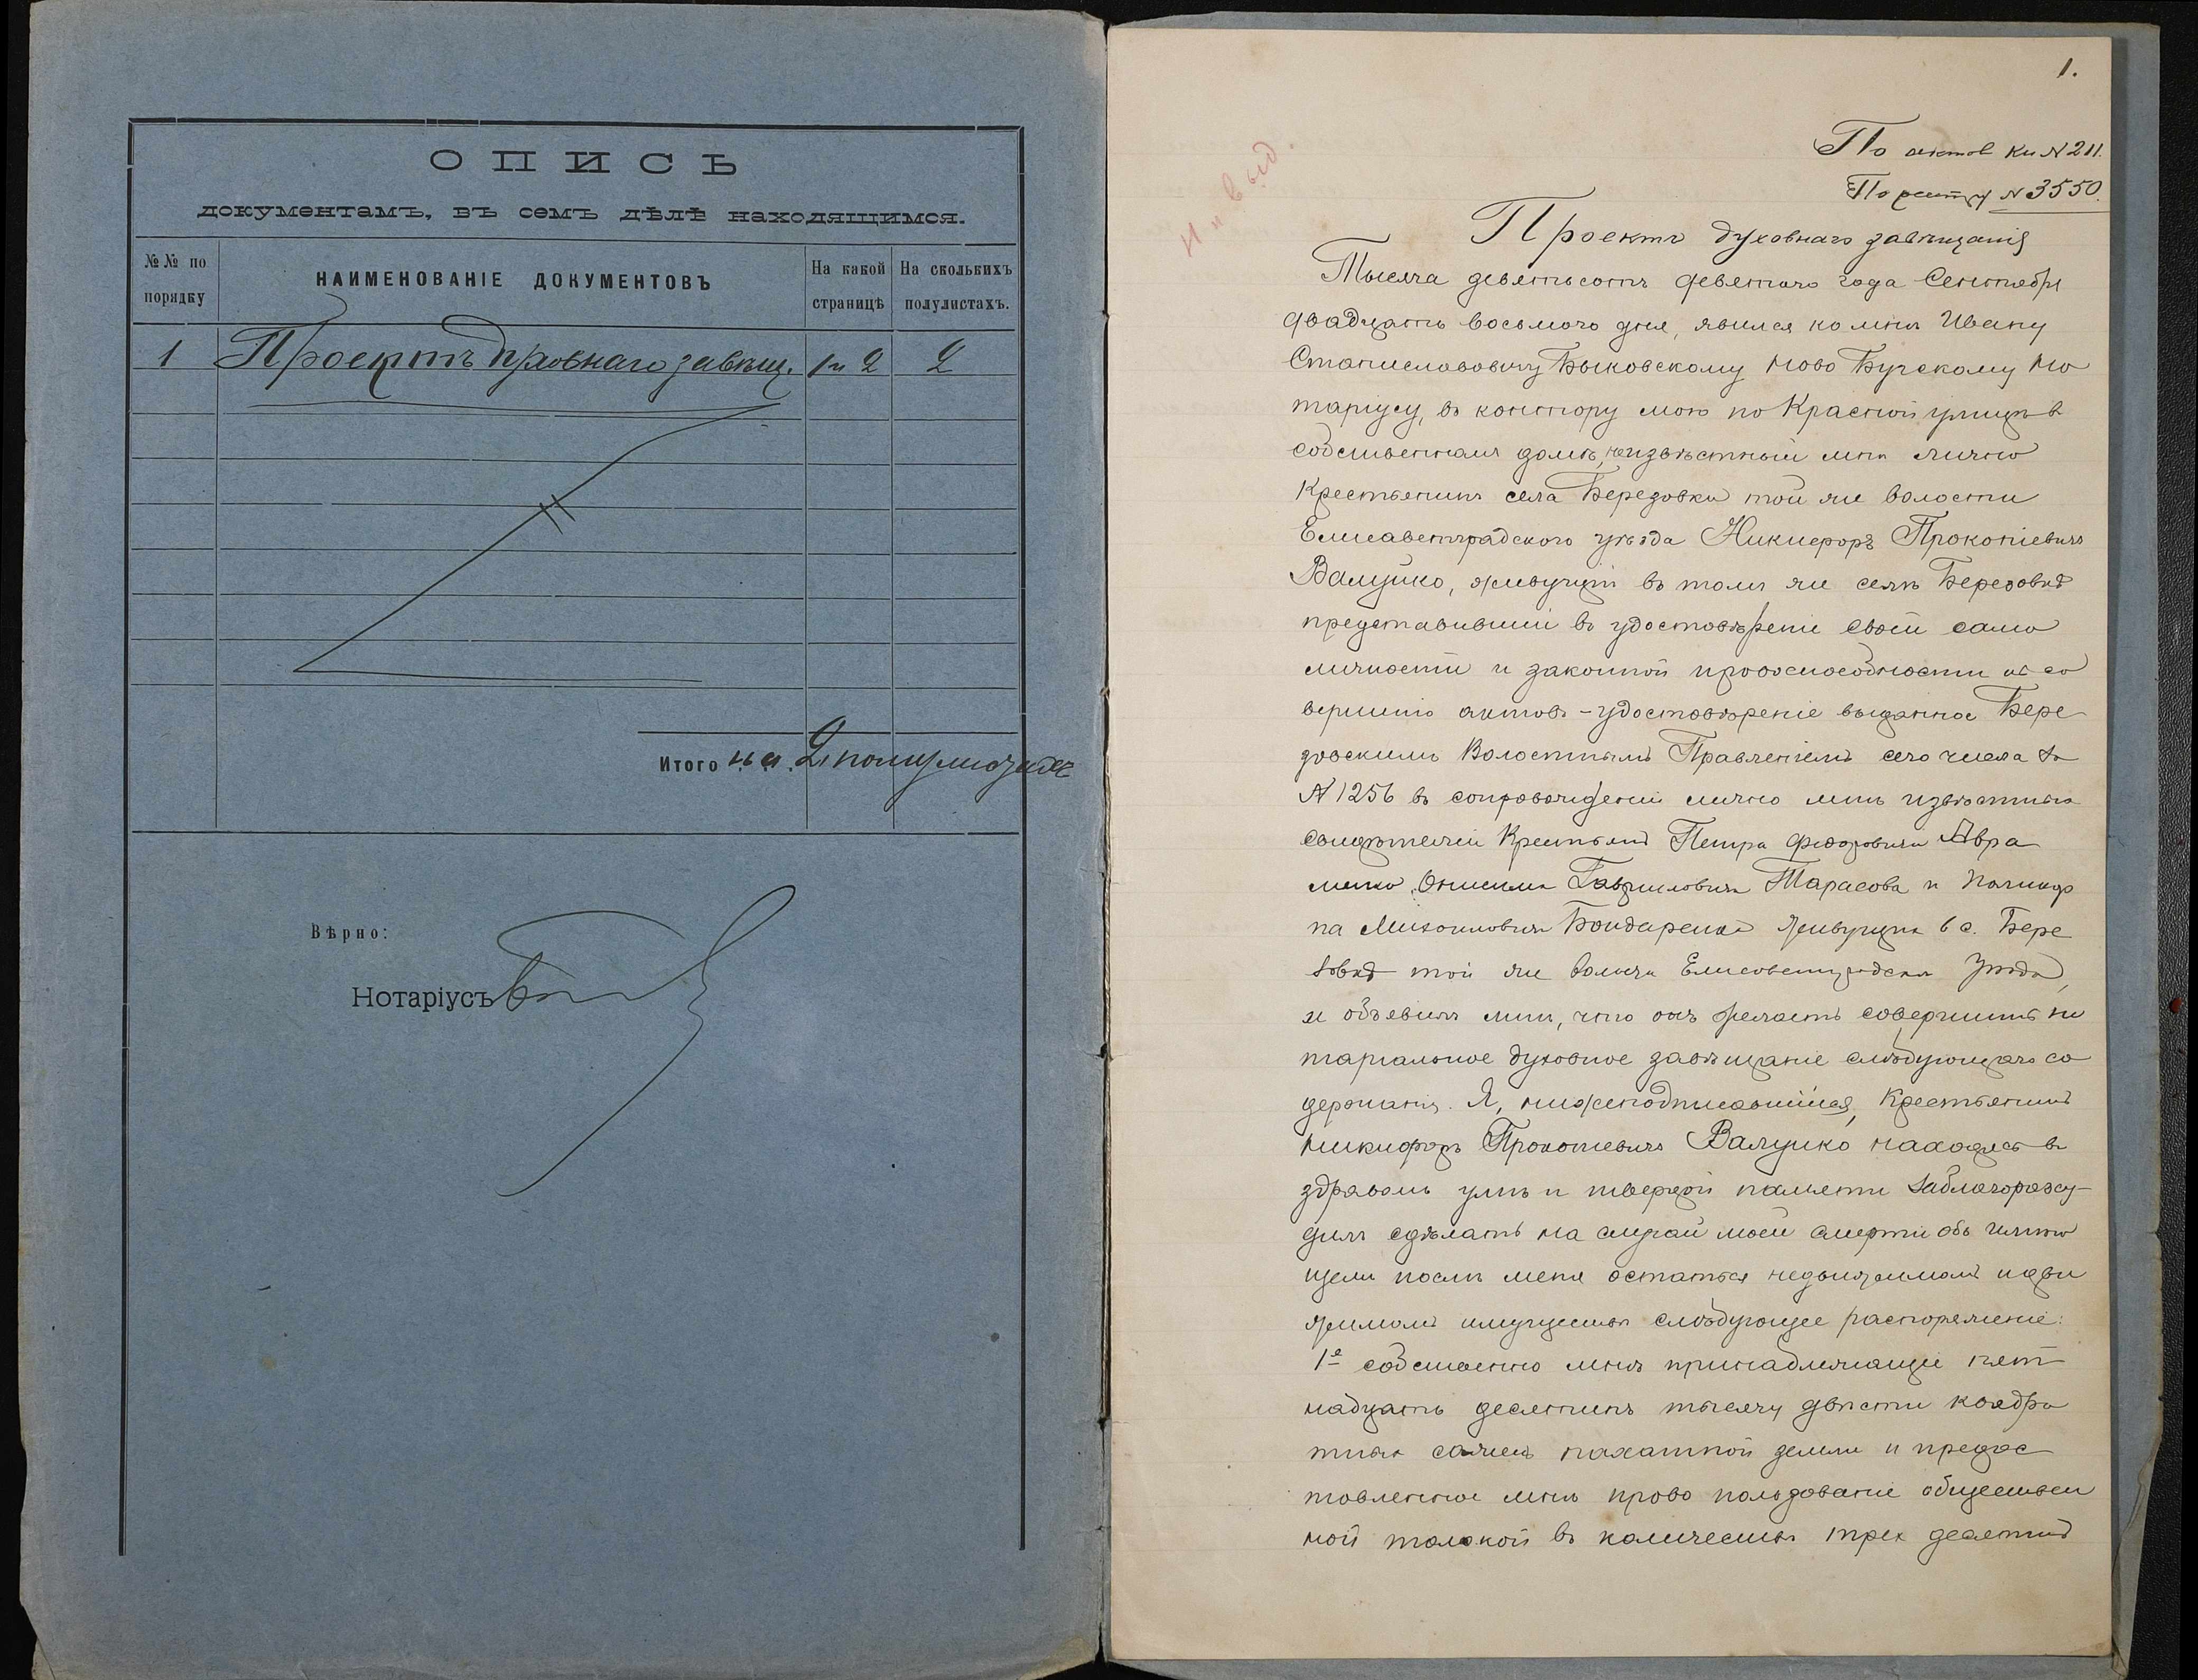 ОПИСЬ
документамъ, въ семъ дѣлѣ находящимся.
№№ по порядку
НАИМЕНОВАНІЕ ДОКУМЕНТОВЪ
На какой страницѣ
На сколькихъ полулистахъ.
1 Проектъ духовнаго завѣщ. 1 и 2 2
Итого на 2 полулистахъ
Вѣрно:
Нотаріусъ
1.
По актов кн № 211.
По реестру № 3550.
Проектъ духовнаго завѣщанія
Тысяча девятьсотъ девятаго года Сентября
двадцать восьмого дня, явился ко мнѣ Ивану
Станиславовичу Быковскому Ново Бугскому Но
таріусу, въ контору мою по Красной улицѣ в
собственномъ домѣ, неизвѣстный мнѣ лично
Крестьянинъ села Березовки той же волости
Елисаветградского уѣзда Никифоръ Прокопіевичъ
Валуйко, живущій въ томъ же селѣ Березовкѣ
представившій въ удостовѣреніе своей само
личности и законной правоспособности къ со
вершенію актовъ - удостовѣреніе выданное Бере
зовскимъ Волостнымъ Правленіемъ сего числа за
№ 1256 въ сопровожденіи лично мнѣ извѣстныхъ
свидѣтелей Крестьянъ Петра Федоровича Авра
менко, Онисима Гавриловича Тарасова и Поликар
па Михайловича Бондаренко живущихъ в с. Бере
зовкѣ той же волости Елисаветградскаго Уѣзда,
и объявилъ мнѣ, что онъ желаетъ совершить но
таріальное духовное завѣщаніе слѣдующаго со
держанія. Я, нижеподписавшійся, Крестьянинъ
Никифоръ Прокопіевичъ Валуйко находясь въ
здравомъ умѣ и твердой памяти заблагоразсу-
дилъ сдѣлать на случай моей смерти объ имѣю
щемъ послѣ меня остаться недвижимомъ и дви
жимомъ имуществѣ слѣдующее распоряженіе:
1е собственно мнѣ принадлежащіе пят
надцать десятинъ тысячу двѣсти квадра
тныхъ сажень пахатной земли и предос
тавленное мнѣ право пользованіе обществен
ной толокой въ количествѣ трех десятинъ